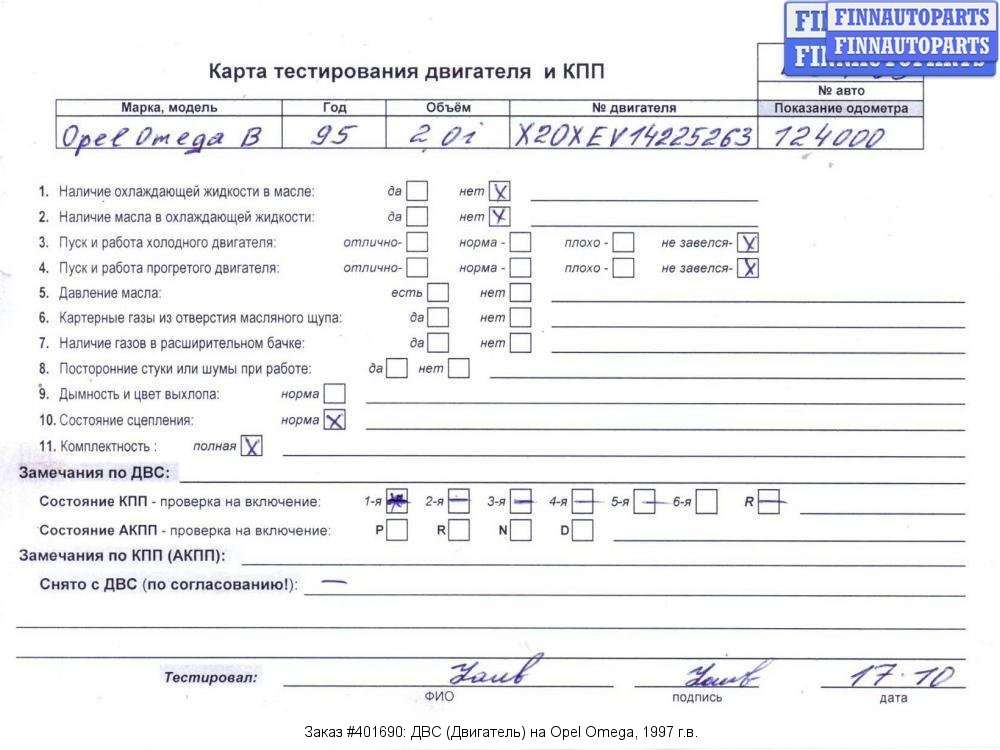 FINNAUTOPARTS
FINNAUTOPARTS
Карта тестирования двигателя и КПП
№ авто
Марка, модель Год Объём № двигателя Показание одометра
Opel Omega B 95 2,0i X20XEV14225263 124000
1. Наличие охлаждающей жидкости в масле: да нет X
2. Наличие масла в охлаждающей жидкости: да нет X
3. Пуск и работа холодного двигателя: отлично- норма - плохо - не завелся- X
4. Пуск и работа прогретого двигателя: отлично- норма - плохо - не завелся- X
5. Давление масла: есть нет
6. Картерные газы из отверстия масляного щупа: да нет
7. Наличие газов в расширительном бачке: да нет
8. Посторонние стуки или шумы при работе: да нет
9. Дымность и цвет выхлопа: норма
10. Состояние сцепления: норма X
11. Комплектность : полная X
Замечания по ДВС:
Состояние КПП - проверка на включение: 1-я 2-я 3-я 4-я 5-я 6-я R
Состояние АКПП - проверка на включение: P R N D
Замечания по КПП (АКПП):
Снято с ДВС (по согласованию!): —
Тестировал: 17.10
ФИО подпись дата
Заказ #401690: ДВС (Двигатель) на Opel Omega, 1997 г.в.